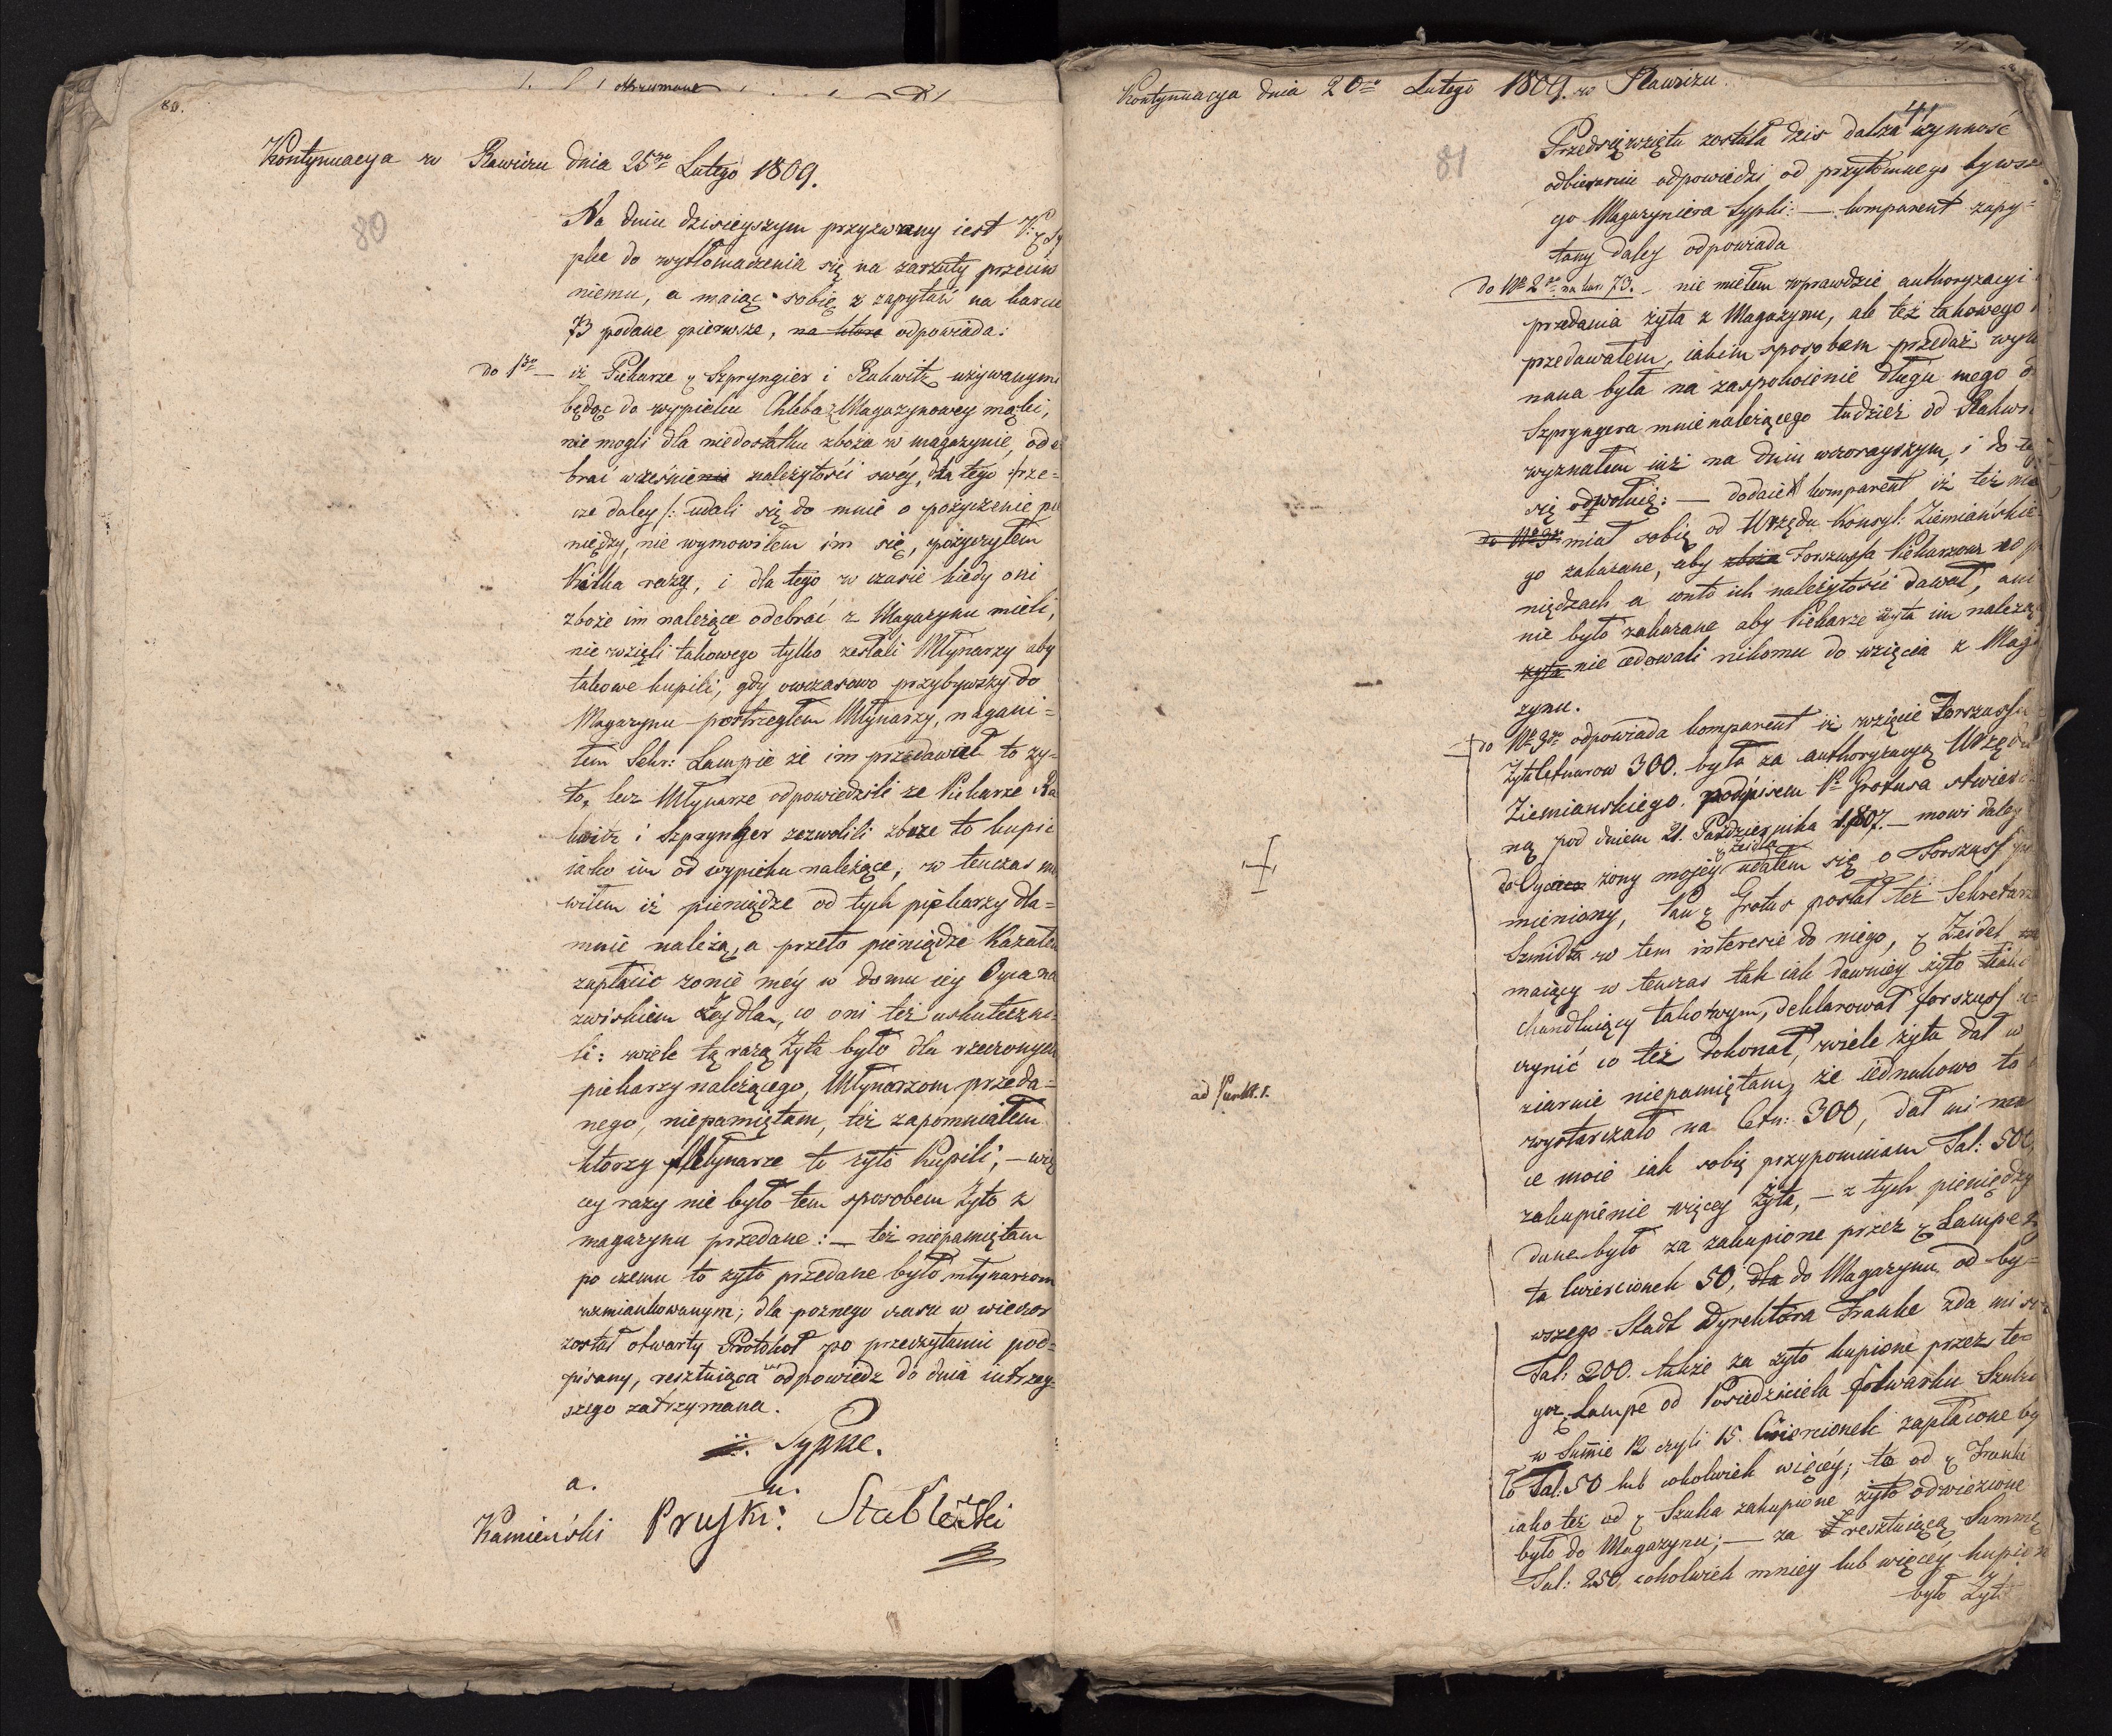 80.
Kontynuacya w Rawiczu dnia 25go Lutego 1809.
80
Na dniu dzisieyszym przyzwany iest P: z Sy
pke do wytłomaczenia się na zarzuty przeciw
niemu, a maiąc sobie z zapytań na karcie
73 podane pierwsze, na ktore odpowiada:
do 1go — iż Piekarze z Szpryngier i Rakwitz używanymi
będąc do wypieku Chleba z Magazynowey mąki,
nie mogli dla niedostatku zboża w magazynie, ode
brać wcześnie należytości swéy, dla tego prze=
cze daley /: udali się do mnie o pożyczenie pie
niędzy, nie wymowiłem im się, pożyczyłem
kilka razy, i dla tego w czasie kiedy oni
zboże im należące odebrać z Magazynu mieli,
nie wzięli takowego tylko zesłali Młynarzy aby
takowe kupili, gdy owczasowo przybywszy do
Magazynu postrzegłem Młynarzy, nagani=
łem Sekr: Lampie że im przedawał to ży=
to, lecz Młynarze odpowiedzili że Piekarze Ra
kwitz i Szprynger zezwolili zboże to kupić
iako im od wypieku należące, w tenczas mó
wiłem iż pieniądze od tych piekarzy dla=
mnie należą, a przeto pieniądze Kazałem
zapłacić żonie méy w domu iey Oyca na
zwiskiem Zeydla, co oni też uskuteczni=
li: wiele tą razą Żyta było dla rzeczonych
piekarzy należącego, Młynarzom przeda=
nego, niepamiętam, też zapomniałem
ktorzy Młynarze to żyto Kupili, — wię
cey razy nie było tem sposobem żyto z
magazynu przedane: — też niepamiętam
po czemu to żyto przedane było młynarzom
wzmiankowanym; dla poznego czasu w wieczor
został otwarty Protokoł po przeczytaniu pod=
pisany, resztuiąca odpowiedz do dnia iutrzey=
szego zatrzymana.
Sypke.
a. u.
Kamieński Pruski: Stablewski
Kontynuacya dnia 20go Lutego 1809. w Rawiczu.
41
81
Przedsięwzięta została dzis dalsza czynność
odbierania odpowiedzi od przytomnego bywsze
go Magazyniera Sypki: — komparent zapy=
tany daley odpowiada
do No 2do na kar: 73. — nie miełem wprawdzie authoryzacyi
przedania żyta z Magazynu, ale też takowego
przedawałem, iakim sposobem przedaż wyko
nana była na zaspokoienie długu mego od
Szpryngera mnie należącego tudzież od Rakwi
wyznałem iuż na dniu wczorayszym, i do te
się odwołuię: — dodaie komparent iż też nie
do No 3 miał sobie od Urzędu Konsyl: Ziemiańskie
go zakazane, aby zboża Forszussa Piekarzom w pie
niędzach a conto ich należytości dawał, ani
nie było zakazane aby Piekarze żyta im należą
żyta nie cedowali nikomu do wzięcia z Maga
zynu.
do No 3go odpowiada komparent iż wzięcie Forszussu
żyta Cetnarow 300. była za authoryzacyą Urzędu
Ziemianskiego. podpisem P: Grotusa stwierdzo
ną pod dniem 21. Październiks 1807. — mowi daley
z Zeidla
do Oyca żony mojéy udałem się o Forszuss
mieniony, Pan z Grotus posłał też Sekretarza
Szmidta w tem interesie do niego, z Zeidel
maiący w tenczas tak iak dawniey żyto
chandluiący takowym, deklarował forszuss u
czynić co też dokonał, wiele żyta dał w
ziarnie niepamiętam, że iednakowo to
wystarczało na Cetn: 300, dał mi na
ce moie iak sobie przypominam Tal: 500,
zakupienie więcey żyta, — z tych pieniędzy
dane było za zakupione przez z Lampe ży
ta Cwiercionek 50, dla do Magazynu od by=
wszego Stadt Dyrektora Franke zda mi się
Tal: 200. także za żyto kupione przez te
goż Lampe od Posiedziciela folwarku Szulca
w Summie 12 czyli 15. Cwiercionek zapłacone by
ło Tal: 50 lub cokolwiek więcéy; to od z Franke
iako też od z Szulca zakupione żyto odwiezione
było do Magazynu; — za resztuiącą Summę
Tal: 250, cokolwiek mniey lub więcéy kupione
było Żyto
ad Punkt. 1.